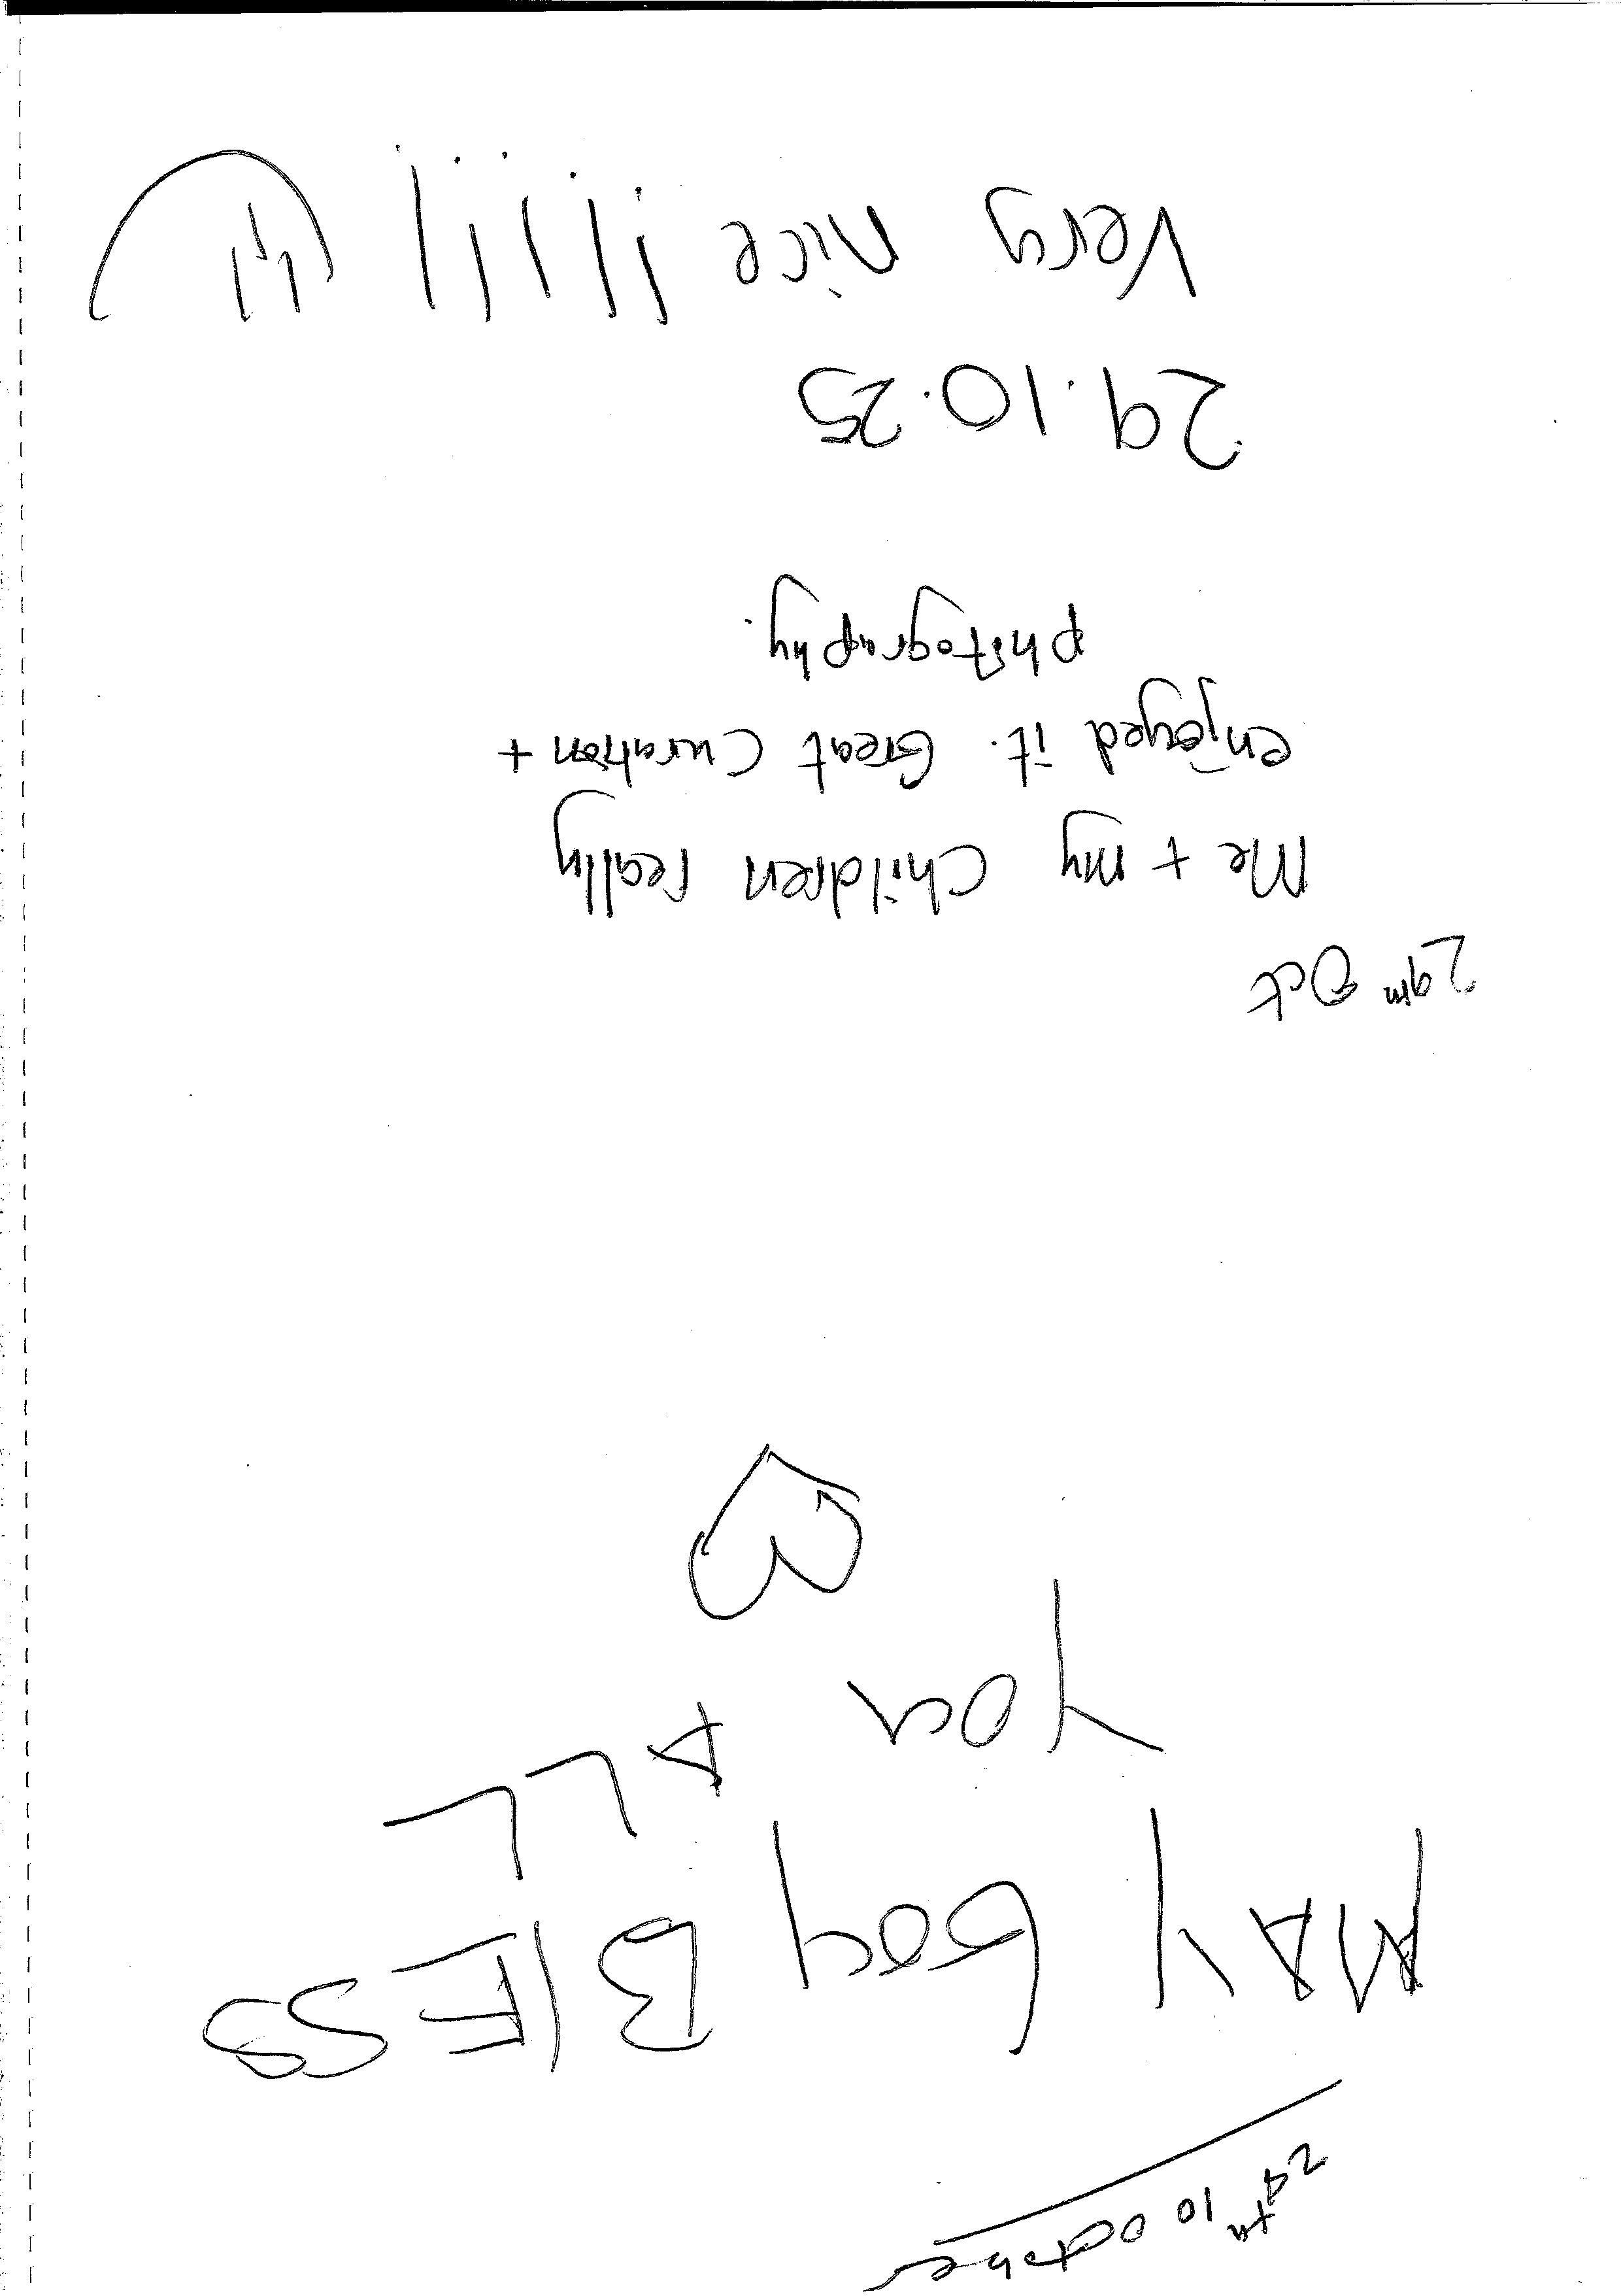 29th 10 october
MAY GOD BlESS
You ALL
29th Oct
Me + my children really
enjoyed it. Great Curation +
photography.
29.10.25
Very nice !!!!!